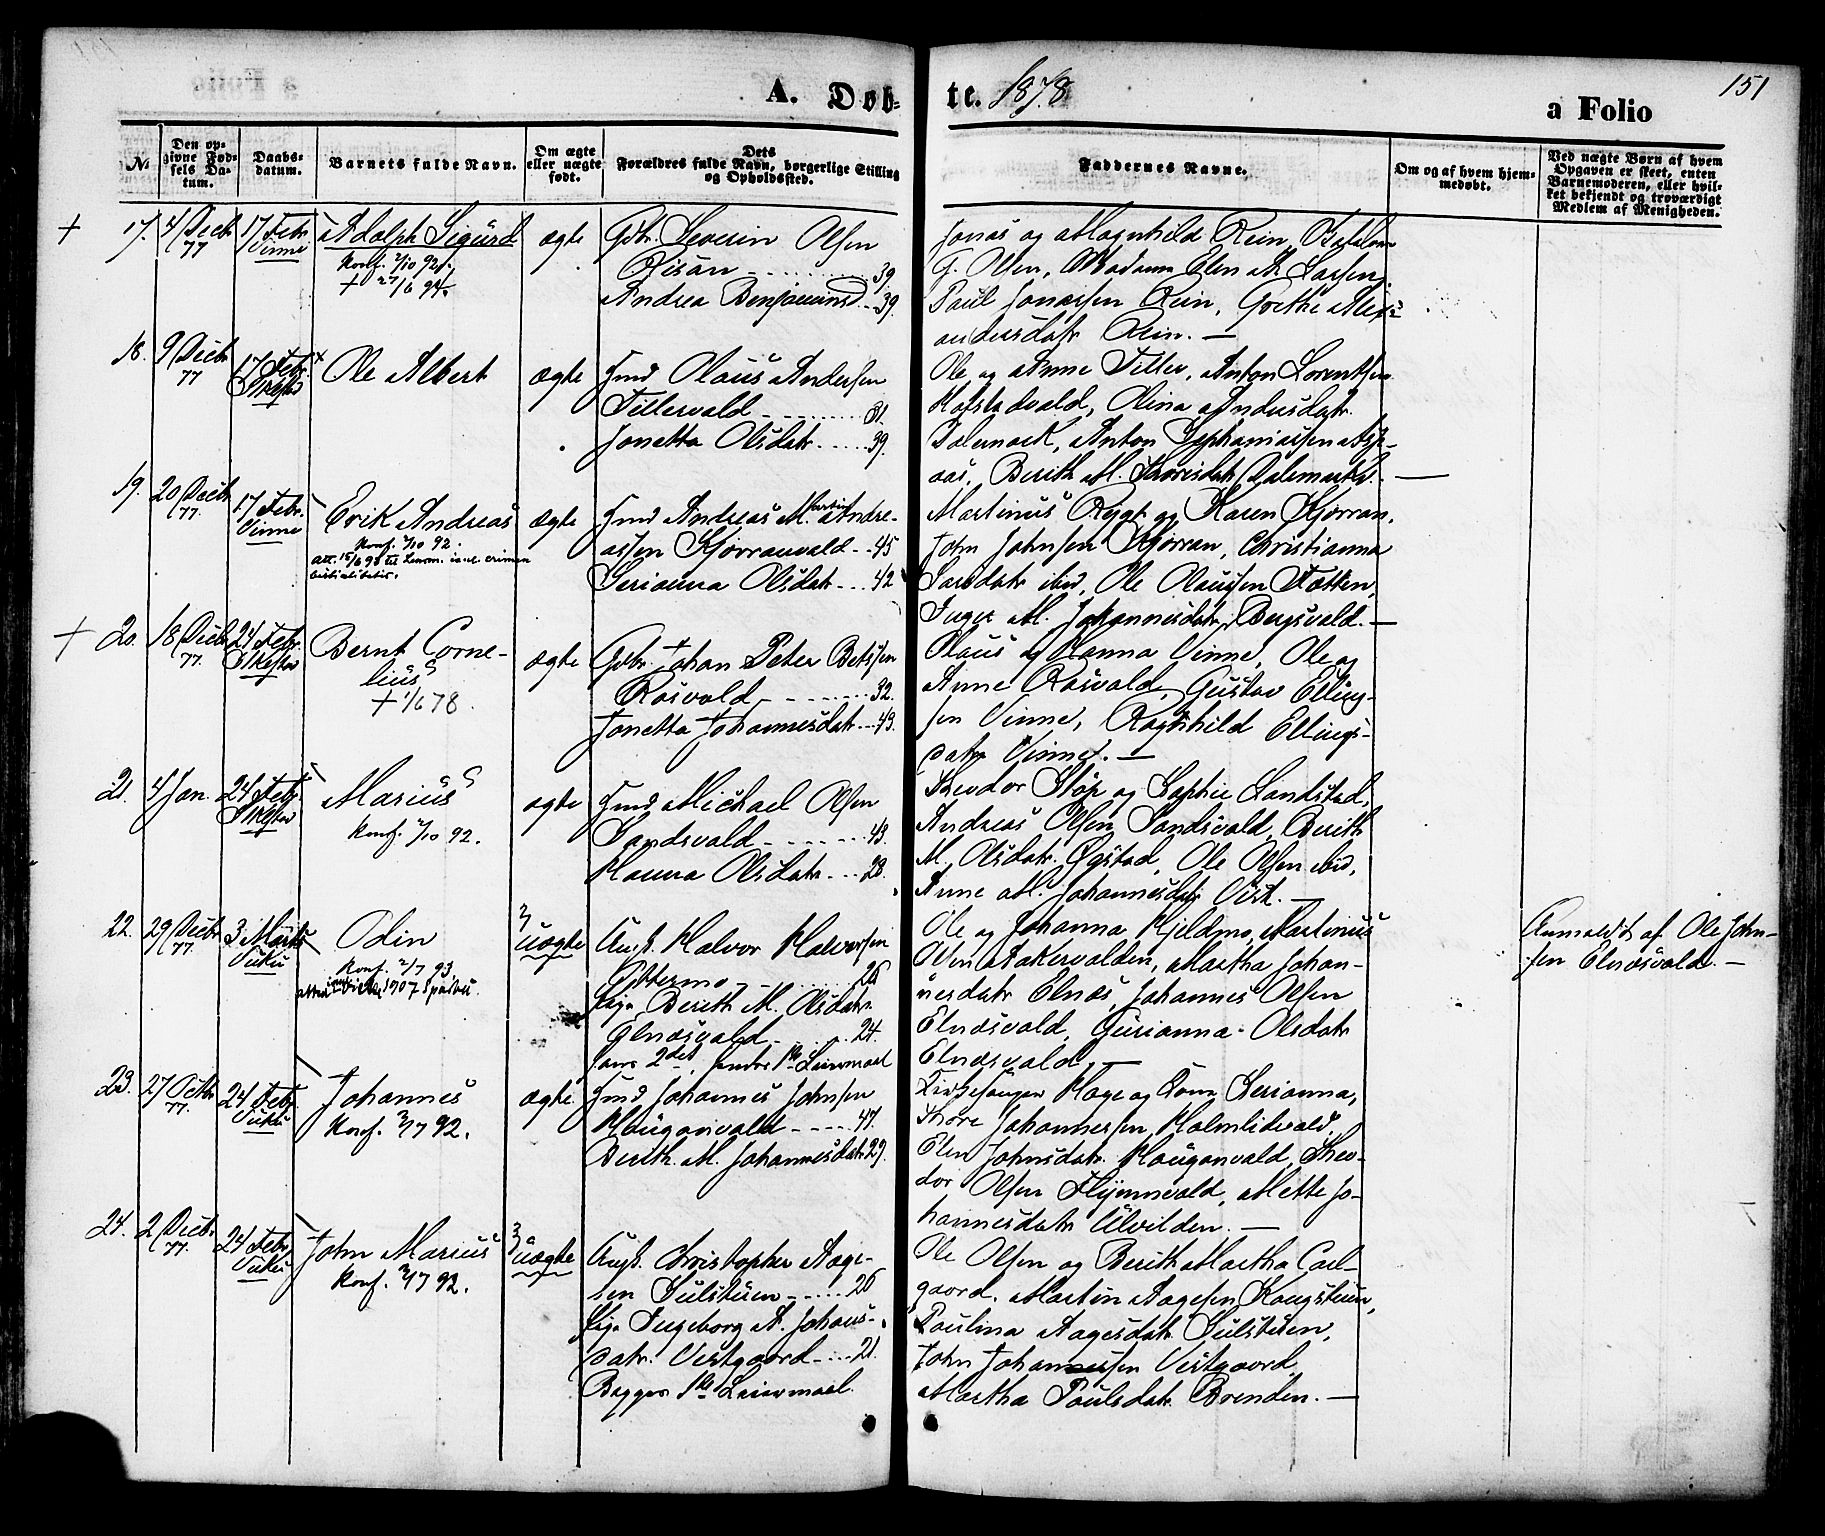 151
A. Døb-
te. 1878.
a Folio
No.
Den op-
givne Fød-
sels Da-
tum.
Daabs-
datum.
Barnets fulde Navn.
Om ægte
eller uægte
født.
Dets
Forældres fulde Navn, borgerlige Stilling
og Opholdssted.
Faddernes Navne.
Om og af hvem hjem-
medøbt.
Ved uægte Børn af hvem
Opgaven er skeet, enten
Barnemoderen, eller hvil-
ket bekjendt og troværdigt
Medlem af Menigheden.
+ 17. 4 Decbr 77 17 Febr. Vinne
Adolph Sigurd
Konf. 2/10 92.
+ 27/6 94.
ægte
Gbr. Severin Olsen
Risan 39
Andrea Benjaminsd. 39.
Jonas og Magnhild Rein,
G. Olsen, Madam Elen A. Larsen,
Paul Jonassen Rein, Grethe Alex-
andersdatr Rein. —
18. 9 Decbr 77 17 Febr.
Ole Albert
ægte
Hmd Olaus Andersen
Tillervald 31.
Jonetta Olsdatr 39.
Ole og Anne Tiller, Anton Lorentsen
Hofstadvald, Olina Andersdatr.
Dalemark, Anton Zephaniassen Asp-
aas, Berith M. Dalemark. —
19. 20 Decbr 77. 17 Febr. Vinne
Erik Andreas
Konf. 2/10 92.
ægte
Hmd Andreas M. Martin Andre-
assen Kjørranvald 45
Serianna Olsdatr 42
Martinus Rygt og Karen Kjørran,
John Johnsen Kjørran, Christianna
Larsdatr ibid, Ole Olaussen Fætten,
Inger M. Johannesdatr Bergsvald. —
+ 20. 18 Decbr 77. 24 Febr.
Bernt Corne-
lius
+ 1/6 78.
ægte
Gbr. Johan Peter Betssen
Rosvold 32.
Jonetta Johannesdatr 43.
Olaus og Hanna Vinne, Ole og
Anne Rosvold, Gustav Elling-
sen Vinne, Ragnhild Ellings-
datr Vinne. —
21. 4 Jan. 24 Febr.
Marius
Konf. 2/10 92.
ægte
Hmd Michael Olsen
Sandsvald 43.
Hanna Olsdatr 28.
Theodor Støp og Sophie Landstad,
Andreas Olsen Sandsvald, Berith
M. Olsdatr. Øgstad, Ole Olsen ibid,
Anne M. Johannesdatr Vist. —
22. 29 Decbr 77. 3 Marts Vuku
Odin
Konf. 2/7 93.
uægte
Ungk. Halvor Halvorsen
Østermo 26
Pige Berith M. Olsdatr.
Elnæsvald 24.
hans 2det, hendes 1ste Leiermaal
Ole og Johanna Kjeldmo, Martinus
Olsen Aakervolden, Martha Johan-
nesdatr Elnæs, Johannes Olsen
Elnæsvald, Gurianna Olsdatr
Elnæsvald. —
Anmeldt af Ole John-
sen Elnæsvald. —
23. 27 Octbr 77. 24 Febr. Vuku
Johannes
Konf. 2/7 92.
ægte
Hmd Johannes Johnsen
Hauganvald 47.
Berith M. Johannesdatr 29.
Kirkesanger Hage og Kone Serianna,
Thore Johannessen Holmlidvald,
Elen Johnsdatr. Hauganvald, Theo-
dor Olsen Flynnvald, Mette Jo-
hannesdatr Ulvilden. —
24. 2 Decbr 77. 24 Febr. Vuku
John Marius
Konf. 2/7 92.
uægte
Ungk. Christopher Aage-
sen Sulstuen 26
Pige Ingeborg A. Johans-
datr. Vestgaard 21.
Begges 1ste Leiermaal.
Ole Olsen og Berith Martha Carl-
gaard, Martin Aagesen Kongstuen,
Paulina Aagesdatr Sulstuen,
John Johannessen Vestgaard,
Martha Paulsdatr Brenden. —